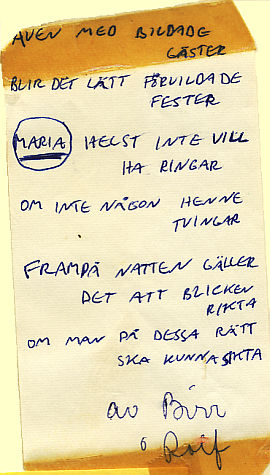 ÄVEN MED BILDADE
GÄSTER
BLIR DET LÄTT FÖRVILDADE
FESTER
MARIA HELST INTE VILL
HA RINGAR
OM INTE NÅGON HENNE
TVINGAR
FRAMPÅ NATTEN GÄLLER
DET ATT BLICKEN
RIKTA
OM MAN PÅ DESSA RÄTT
SKA KUNNA SIKTA
av Birr
o Rolf